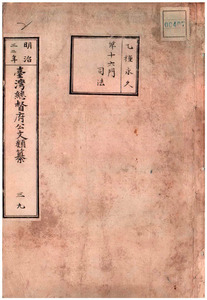 乙種永久
第十六門
司法
明治
三二年
臺灣總督府公文類纂
三九